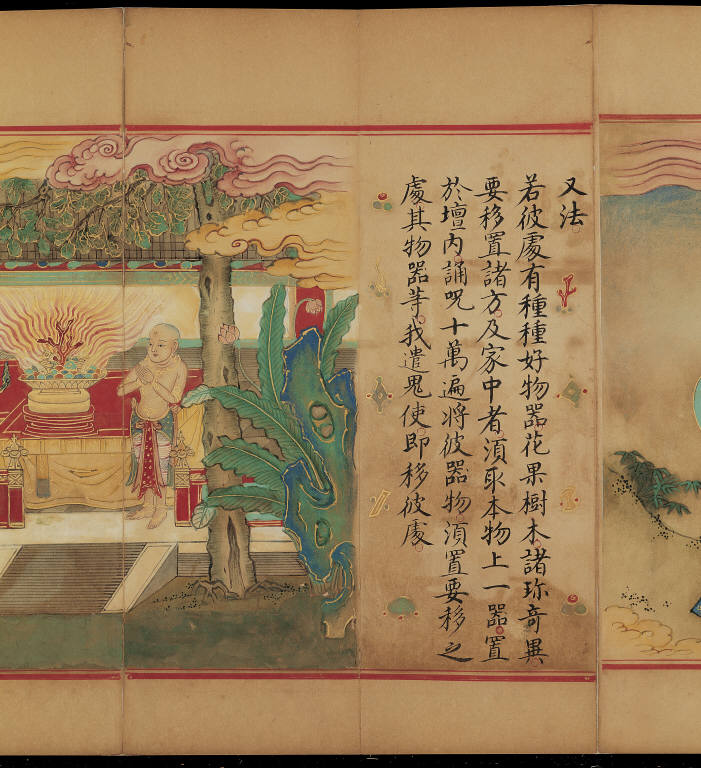 又法
若彼處有種種好物器花果樹木諸珎奇異
要移置諸方及家中者須取本物上一器置
於壇内誦呪十萬遍將彼器物湏置要移之
處其物器䓁我遣鬼使即移彼處